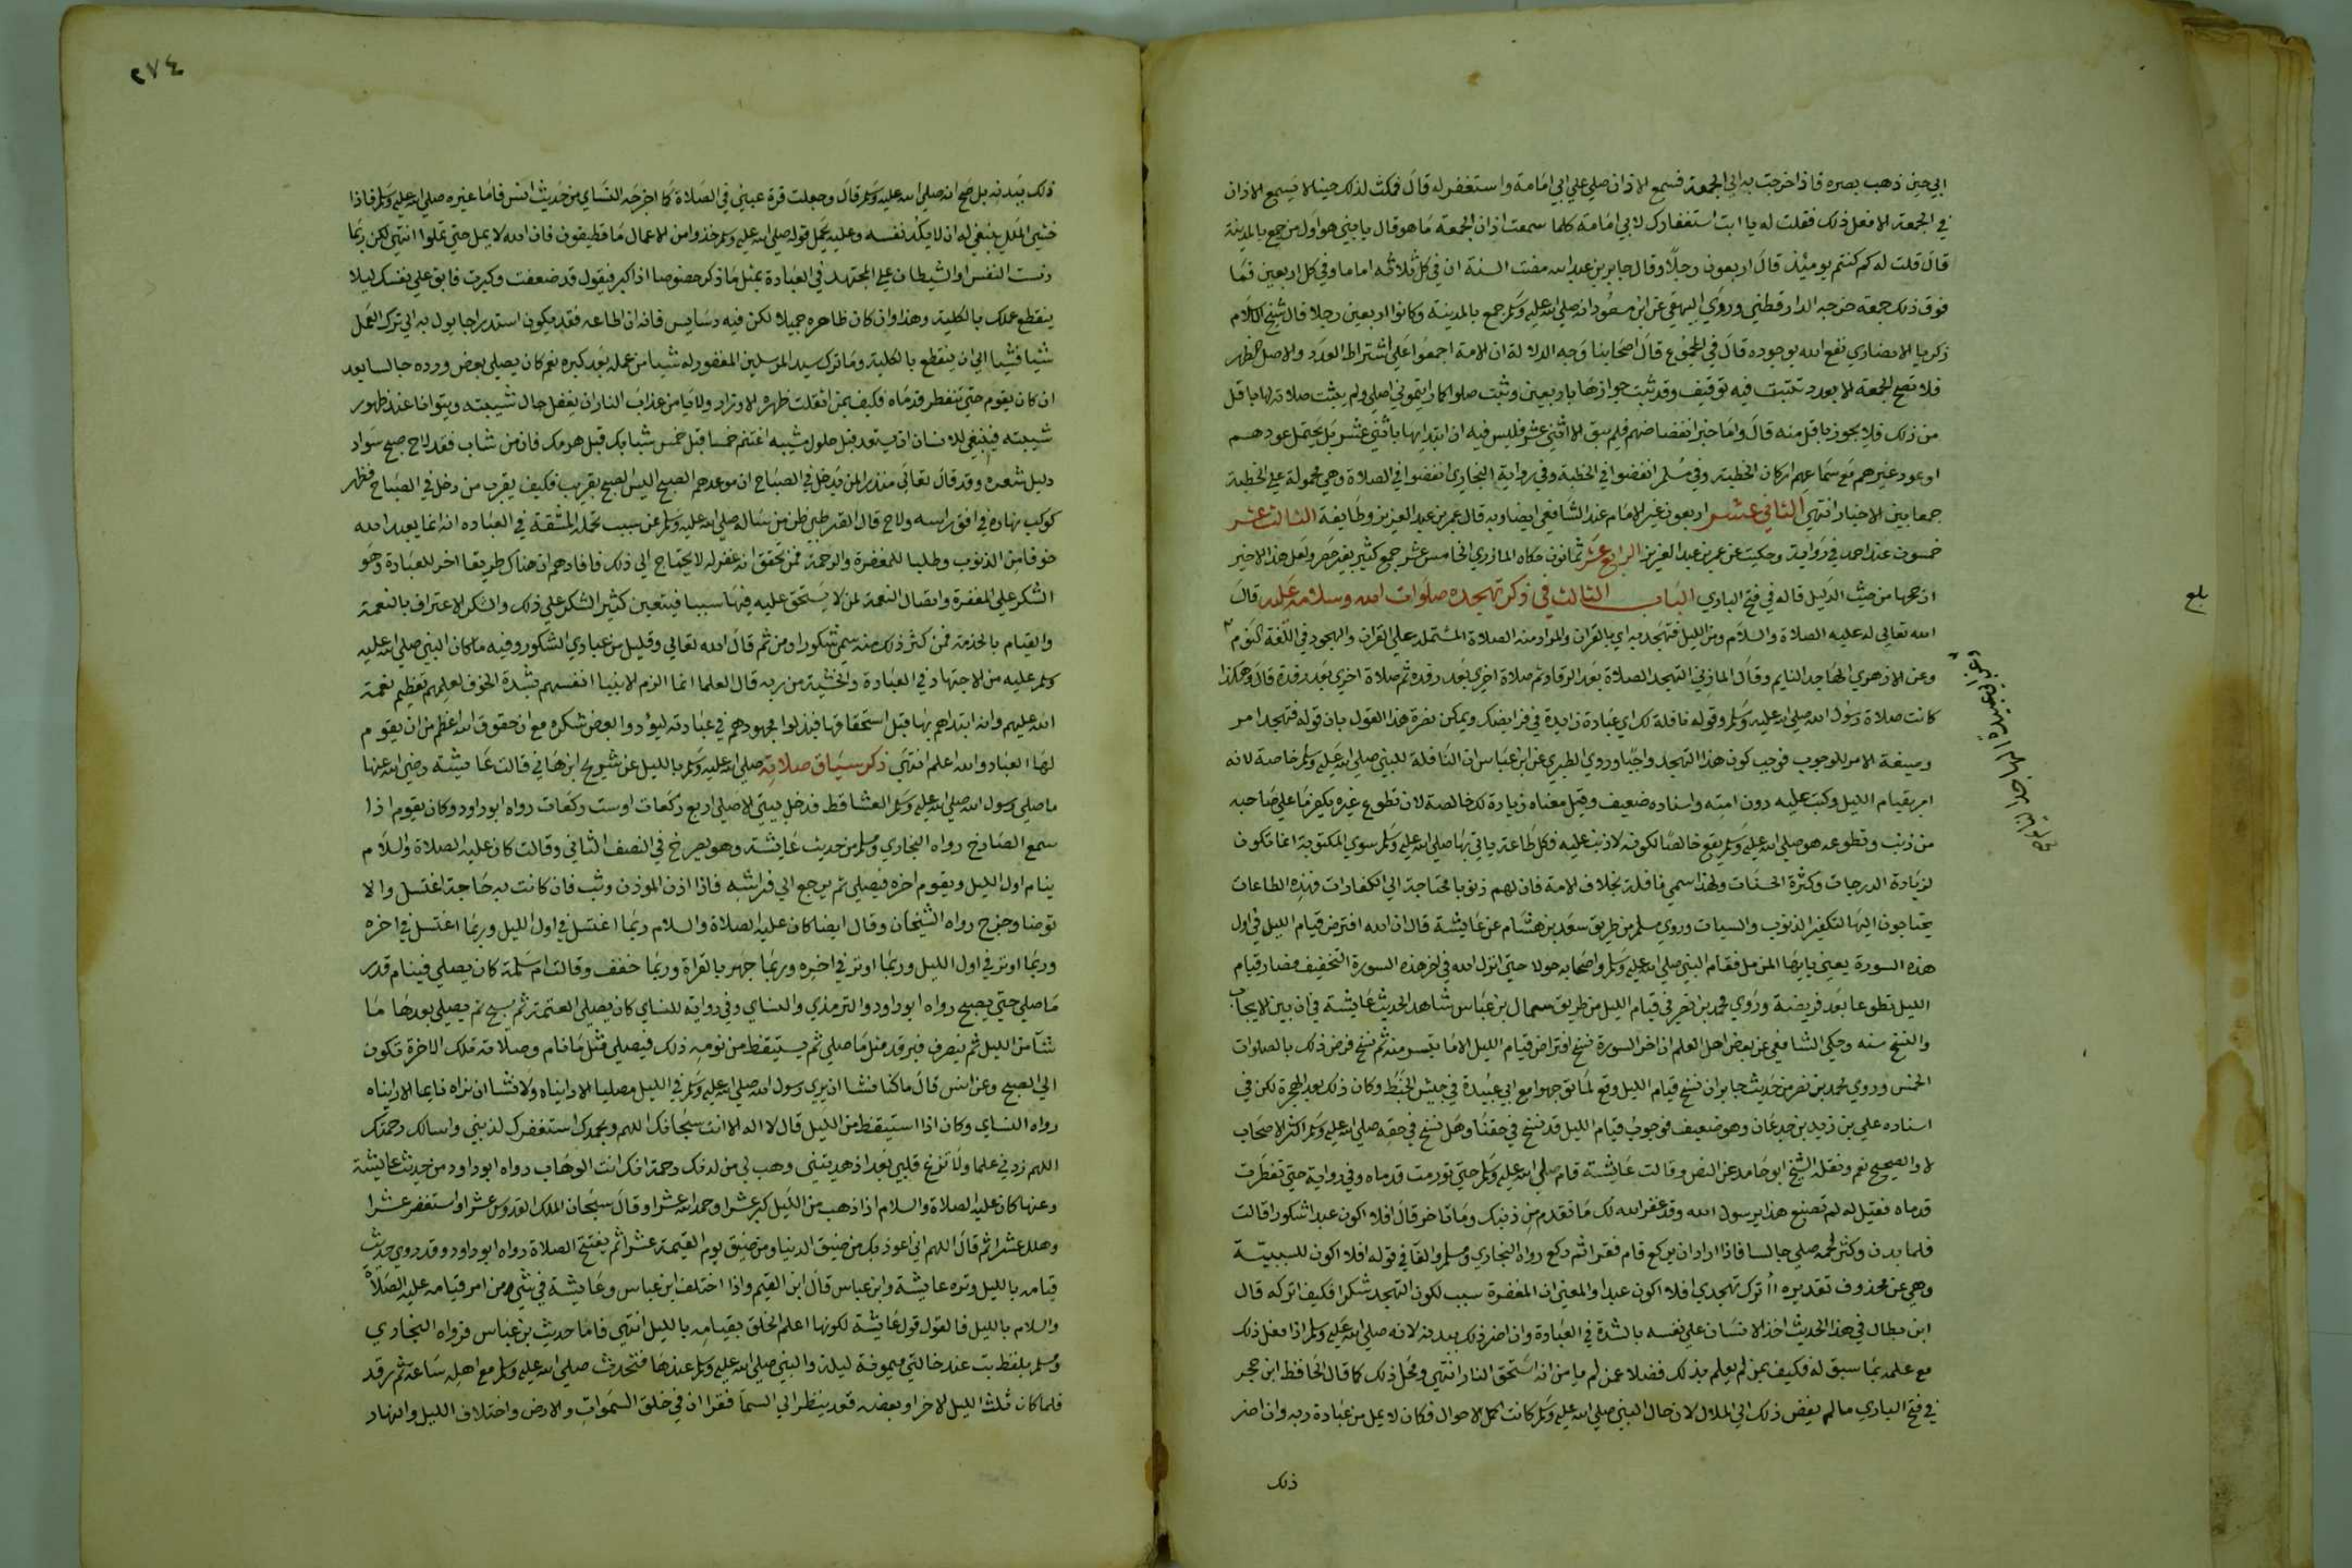 ابي حين ذهب بصره فاذا خرجت به الي الجمعة فسمع الاذان صلي علي ابي امامة واستغفر له قال فمكث لذلك حينا لا يسمع الاذان
في الجمعة الا فعل ذلك فقلت له يا ابت استغفارك لابي امامة كلما سمعت اذان الجمعة ما هو قال يا بني هو اول من جمع بالمدينة
قال قلت له كم كنتم يومئذ قال اربعون رجلا وقال جابر بن عبد الله مضت السنة ان في كل ثلاثة اماما وفي كل اربعين فما
فوق ذلك جمعة خرجه الدارقطني وروي البيهقي عن ابن مسعود انه صلي الله عليه وسلم جمع بالمدينة وكانوا اربعين رجلا قال شيخ الاسلام
زكريا الانصاري نفع الله بوجوده قال في المجموع قال اصحابنا وجه الدلالة ان الامة اجمعوا علي اشتراط العدد والاصل الظهر
فلا تصح الجمعة الا بعدد تثبت فيه توقيف وقد ثبت جوازها باربعين وثبت صلوا كما رايتموني اصلي ولم يثبت صلاته لها باقل
من ذلك فلا يجوز باقل منه قال واما خبر انفضاضهم فلم يبق الا اثني عشر فليس فيه ان ابتداها باثني عشر بل يحتمل عودهم
او عود غيرهم مع سماعهم اركان الخطبة وفي مسلم انفضوا في الخطبة وفي رواية البخاري انفضوا في الصلاة وهي محمولة علي الخطبة
جمعا بين الاخبار انتهي الثاني عشر اربعون غير الامام عند الشافعي ايضا وبه قال عمر بن عبد العزيز وطايفة الثالث عشر
خمسون عند احمد في رواية وحكيت عن عمر بن عبد العزيز الرابع عشر ثمانون حكاه المازري الخامس عشر جمع كثير بغير حصر ولعل هذا الاخير
ارجحها من حيث الدليل قاله في فتح الباري الباب الثالث في ذكر تهجده صلوات الله وسلامه عليه قال
الله تعالي له عليه الصلاة والسلام ومن الليل فتهجد به اي بالقران والمراد منه الصلاة المشتملة علي القران والهجود في اللغة النوم
وعن الازهري الهاجد النايم وقال المازني التهجد الصلاة بعد الرقاد ثم صلاة اخري بعد رقدة ثم صلاة اخري بعد رقدة قال وهكذا
كانت صلاة رسول الله صلي الله عليه وسلم وقوله نافلة لك اي عبادة زايدة في فرايضك ويمكن نصرة هذا القول بان قوله فتهجد امر
وصيغة الامر للوجوب فوجب كون هذا التهجد واجبا وروي الطبري عن ابن عباس ان النافلة للنبي صلي الله عليه وسلم خاصة لانه
امر بقيام الليل وكتب عليه دون امته واسناده ضعيف وقيل معناه زيادة لك خالصة لان تطوع غيره يكفر ما علي صاحبه
من ذنب وتطوعه هو صلي الله عليه وسلم يقع خالصا لكونه لا ذنب عليه فكل طاعة ياتي بها صلي الله عليه وسلم سوي المكتوبة انما تكون
لزيادة الدرجات وكثرة الحسنات ولهذا سمي نافلة بخلاف الامة فان لهم ذنوبا محتاجة الي الكفارات فهذه الطاعات
يحتاجون اليها لتكفير الذنوب والسيات وروي مسلم من طريق سعد بن هشام عن عايشة قال ان الله افترض قيام الليل في اول
هذه السورة يعني يا ايها المزمل فقام النبي صلي الله عليه وسلم واصحابه حولا حتي انزل الله في اخر هذه السورة التخفيف فصار قيام
الليل تطوعا بعد فريضة وروي محمد بن نصر في قيام الليل من طريق سماك بن عباس شاهدا لحديث عايشة في ان بين الايجاب
والنسخ سنة وحكي الشافعي عن بعض اهل العلم ان اخر السورة نسخ افتراض قيام الليل الا ما تيسر منه ثم نسخ فرض ذلك بالصلوات
الخمس وروي محمد بن نصر من حديث جابر ان نسخ قيام الليل وقع لما توجهوا مع ابي عبيدة في جيش الخبط وكان ذلك بعد الهجرة لكن في
اسناده علي بن زيد بن جدعان وهو ضعيف فوجوب قيام الليل قد نسخ في حقنا وهل نسخ في حقه صلي الله عليه وسلم اكثر الاصحاب
لا والصحيح نعم ونقله الشيخ ابو حامد عن النص وقالت عايشة قام صلي الله عليه وسلم حتي تورمت قدماه وفي رواية حتي تفطرت
قدماه فقيل له لم تصنع هذا يرسول الله وقد غفر الله لك ما تقدم من ذنبك وما تاخر قال افلا اكون عبدا شكورا قالت
فلما بدن وكثر لحمه صلي جالسا فاذا اراد ان يركع قام فقرا ثم ركع رواه البخاري ومسلم والفا في قوله افلا اكون للسببية
وهي عن محذوف تقديره ااترك تهجدي افلا اكون عبدا والمعني ان المغفرة سبب لكون التهجد شكرا فكيف اتركه قال
ابن بطال في هذا الحديث اخذ الانسان علي نفسه بالشدة في العبادة وان اضر ذلك ببدنه لانه صلي الله عليه وسلم اذا فعل ذلك
مع علمه بما سبق له فكيف بمن لم يعلم بذلك فضلا عمن لم يامن انه استحق النار انتهي ومحل ذلك كما قال الحافظ ابن حجر
في فتح الباري ما لم يفض ذلك الي الملال لان حال النبي صلي الله عليه وسلم كانت اكمل الاحوال فكان لا يمل من عبادة ربه وان اضر
ذلك
بلغ
٢٧٤
ذلك ببدنه بل صح انه صلي الله عليه وسلم قال وجعلت قرة عيني في الصلاة كما اخرجه النساي من حديث انس فاما غيره صلي الله عليه وسلم فاذا
خشي الملل ينبغي له ان لا يكد نفسه وعليه يحمل قوله صلي الله عليه وسلم خذوا من الاعمال ما تطيقون فان الله لا يمل حتي تملوا انتهي لكن ربما
دست النفس او الشيطان علي المجتهد في العبادة بمثل ما ذكر خصوصا اذا كبر فيقول قد ضعفت وكبرت فابق علي نفسك ليلا
ينقطع عملك بالكلية وهذا وان كان ظاهره جميلا لكن فيه دسايس فانه ان اطاعه فقد يكون استدراجا يول به الي ترك العمل
شيا فشيا الي ان ينقطع بالكلية وما ترك سيد المرسلين المغفور له شيا من عمله بعد كبره نعم كان يصلي بعض ورده جالسا بعد
ان كان يقوم حتي تنفطر قدماه فكيف بمن اثقلت ظهره الاوزار ولا يامن عذاب النار ان يغفل حال شيبته ويتوانا عند ظهور
شيبته فينبغي للانسان ان يستعد قبل حلول مشيبه اغتنم خمسا قبل خمس شبابك قبل هرمك فان من شاب فقد لاح صبح سواد
دليل شعره وقد قال تعالي منذرا لمن يدخل في الصباح ان موعدهم الصبح اليس الصبح بقريب فكيف بقرب من دخل في الصباح فظهر
كوكب نهاره في افق راسه ولاح قال القرطبي ظن من ساله صلي الله عليه وسلم عن سبب تحمله المشقة في العباده انه انما يعبد الله
خوفا من الذنوب وطلبا للمغفرة والرحمة فمن تحقق انه غفر له لا يحتاج الي ذلك فافادهم ان هناك طريقا اخر للعبادة وهو
الشكر علي المغفرة وايصال النعمة لمن لا يستحق عليه فيها سببا فيتعين كثير الشكر علي ذلك والشكر الاعتراف بالنعمة
والقيام بالخدمة فمن كثر ذلك منه سمي شكورا ومن ثم قال الله تعالي وقليل من عبادي الشكور وفيه ما كان النبي صلي الله عليه
وسلم عليه من الاجتهاد في العبادة والخشية من ربه قال العلما انما الزم الانبيا انفسهم بشدة الخوف لعلمهم تعظيم نعمة
الله عليهم وانه ابتداهم بها قبل استحقاقها فبذلوا مجهودهم في عبادته ليؤدوا بعض شكره مع ان حقوق الله اعظم من ان يقوم
لها العباد والله اعلم انتهي ذكر سياق صلاته صلي الله عليه وسلم بالليل عن شريح ابن هاني قالت عايشة رضي الله عنها
ما صلي رسول الله صلي الله عليه وسلم العشا قط فدخل بيتي الا صلي اربع ركعات او ست ركعات رواه ابو داود وكان يقوم اذا
سمع الصارخ رواه البخاري ومسلم من حديث عايشة وهو يصرخ في النصف الثاني وقالت كان عليه الصلاة والسلام
ينام اول الليل ويقوم اخره فيصلي ثم يرجع الي فراشه فاذا اذن الموذن وثب فان كانت به حاجة اغتسل والا
توضا وخرج رواه الشيخان وقال ايضا كان عليه الصلاة والسلام ربما اغتسل في اول الليل وربما اغتسل في اخره
وربما اوتر في اول الليل وربما اوتر في اخيره وربما جهر بالقراة وربما خفف وقالت ام سلمة كان يصلي فينام قدر
ما صلي حتي يصبح رواه ابو داود والترمذي والنساي وفي رواية للنساي كان يصلي العتمة ثم يسبح ثم يصلي بعدها ما
شا من الليل ثم ينصرف فيرقد مثل ما صلي ثم يستيقظ من نومه ذلك فيصلي مثل ما نام وصلاته تلك الاخرة تكون
الي الصبح وعن انس قال ما كنا نشا ان نري رسول الله صلي الله عليه وسلم في الليل مصليا الا رايناه ولا نشا ان نراه نايما الا رايناه
رواه النساي وكان اذا استيقظ من الليل قال لا اله الا انت سبحانك اللهم وبحمدك استغفرك لذنبي واسالك رحمتك
اللهم زدني علما ولا تزغ قلبي بعد اذ هديتني وهب لي من لدنك رحمة انك انت الوهاب رواه ابو داود من حديث عايشة
وعنها كان عليه الصلاة والسلام اذا ذهب من الليل كبر عشرا وحمد الله عشرا وقال سبحان الملك القدوس عشرا واستغفر عشرا
وهلل عشرا ثم قال اللهم اني اعوذ بك من ضيق الدنيا ومن ضيق يوم القيمة عشرا ثم يفتتح الصلاة رواه ابو داود وقد روي حديث
قيامه بالليل وتره عايشة وابن عباس قال ابن القيم واذا اختلف ابن عباس وعايشة في شيء من امر قيامه عليه الصلاة
والسلام بالليل فالقول قول عايشة لكونها اعلم الخلق بقيامه بالليل انتهي فاما حديث بن عباس فرواه البخاري
ومسلم بلفظ بت عند خالتي ميمونة ليلة والنبي صلي الله عليه وسلم عندها فتحدث صلي الله عليه وسلم مع اهله ساعة ثم رقد
فلما كان ثلث الليل الاخر او بعضه قعد ينظر الي السما فقرا ان في خلق السموات والارض واختلاف الليل والنهار